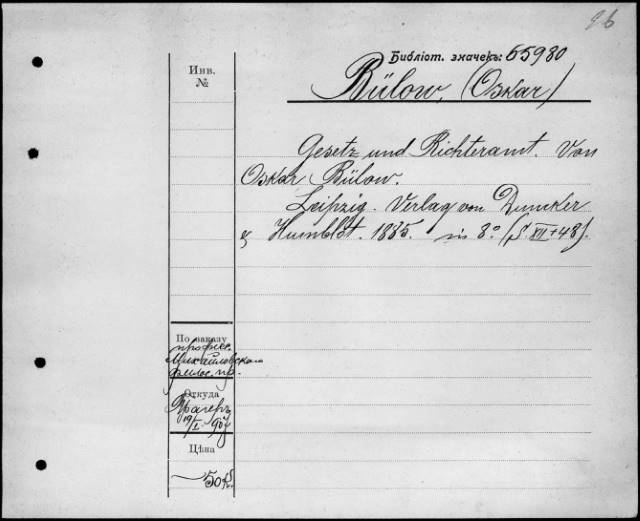 96
Библіот. значекъ: 55980
Инв.
№
Bülow, (Oskar)
Gesetz und Richteramt. Von
Oskar Bülow.
Leipzig. Verlag von Duncker
& Humblot. 1885. in 8° (S. XII + 48).
По заказу
профес.
Михайловскаго
филос. пр.
Откуда
19/I
Цѣна
50 к.